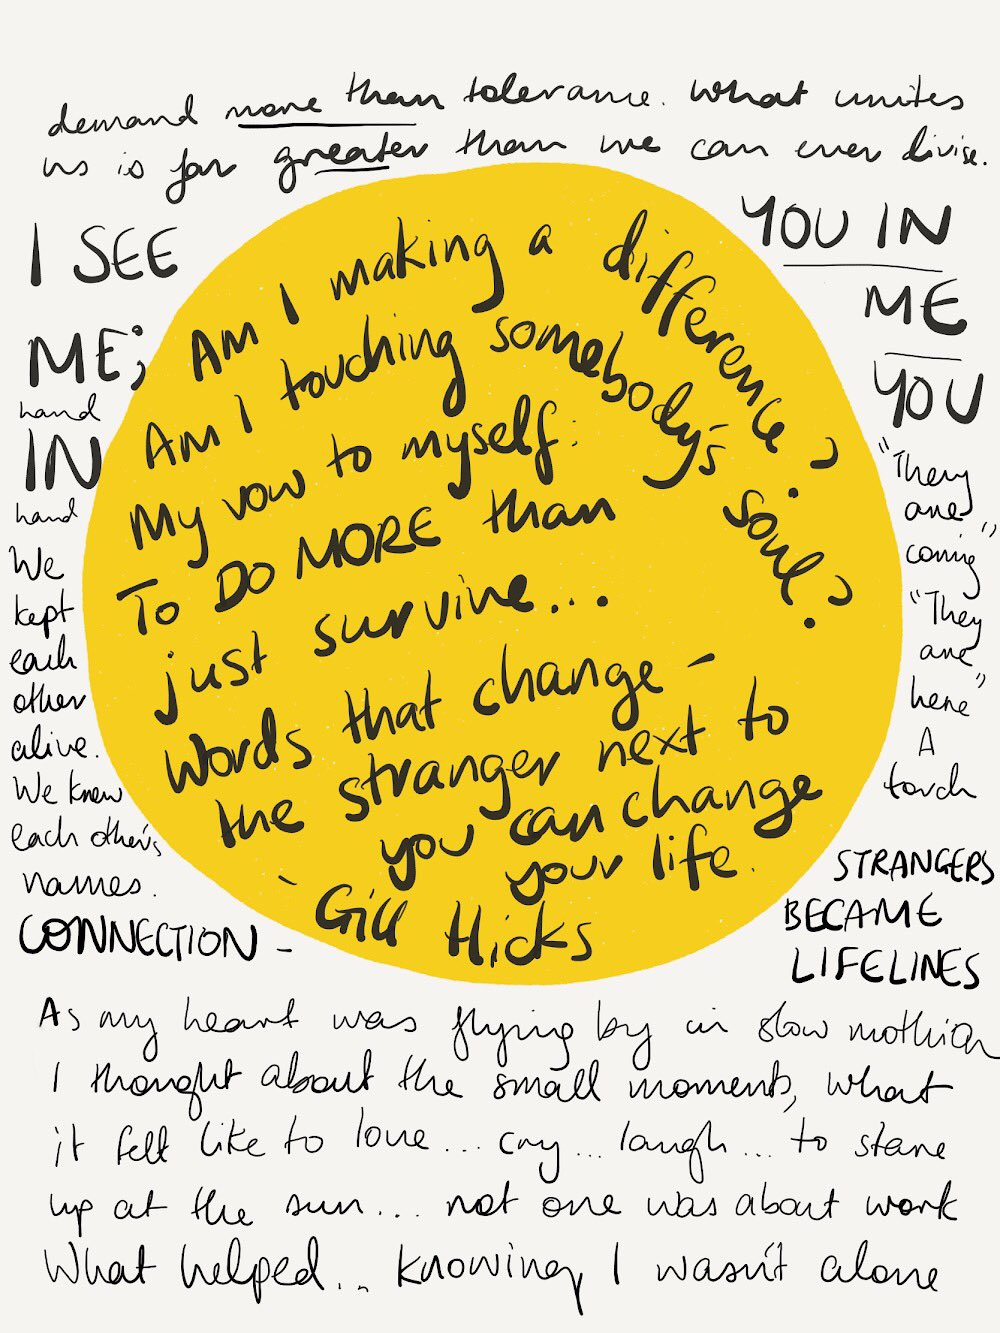 demand more than tolerance. What unites
us is far greater than we can ever divise.
I SEE
ME;
hand
IN
hand
We
kept
each
other
alive.
We knew
each other's
names.
CONNECTION -
Am I making a difference?
Am I touching somebody's soul?
My vow to myself:
To DO MORE than
just survive...
Words that change -
the stranger next to
you can change
your life.
- Gill Hicks
YOU IN
ME
YOU
"They
are
coming"
"They
are
here"
A
torch
STRANGERS
BECAME
LIFELINES
As my heart was flying by in slow mothion
I thought about the small moments, what
it felt like to love... cry... laugh... to stare
up at the sun... not one was about work
What helped... knowing I wasn't alone